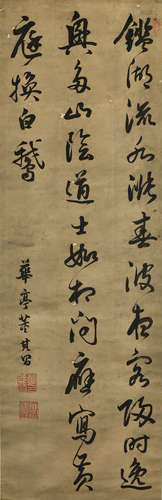 鑑湖流水漾春波狂客歸舟逸
興多山陰道士如相問應寫黃
庭換白鵝
華亭董其昌